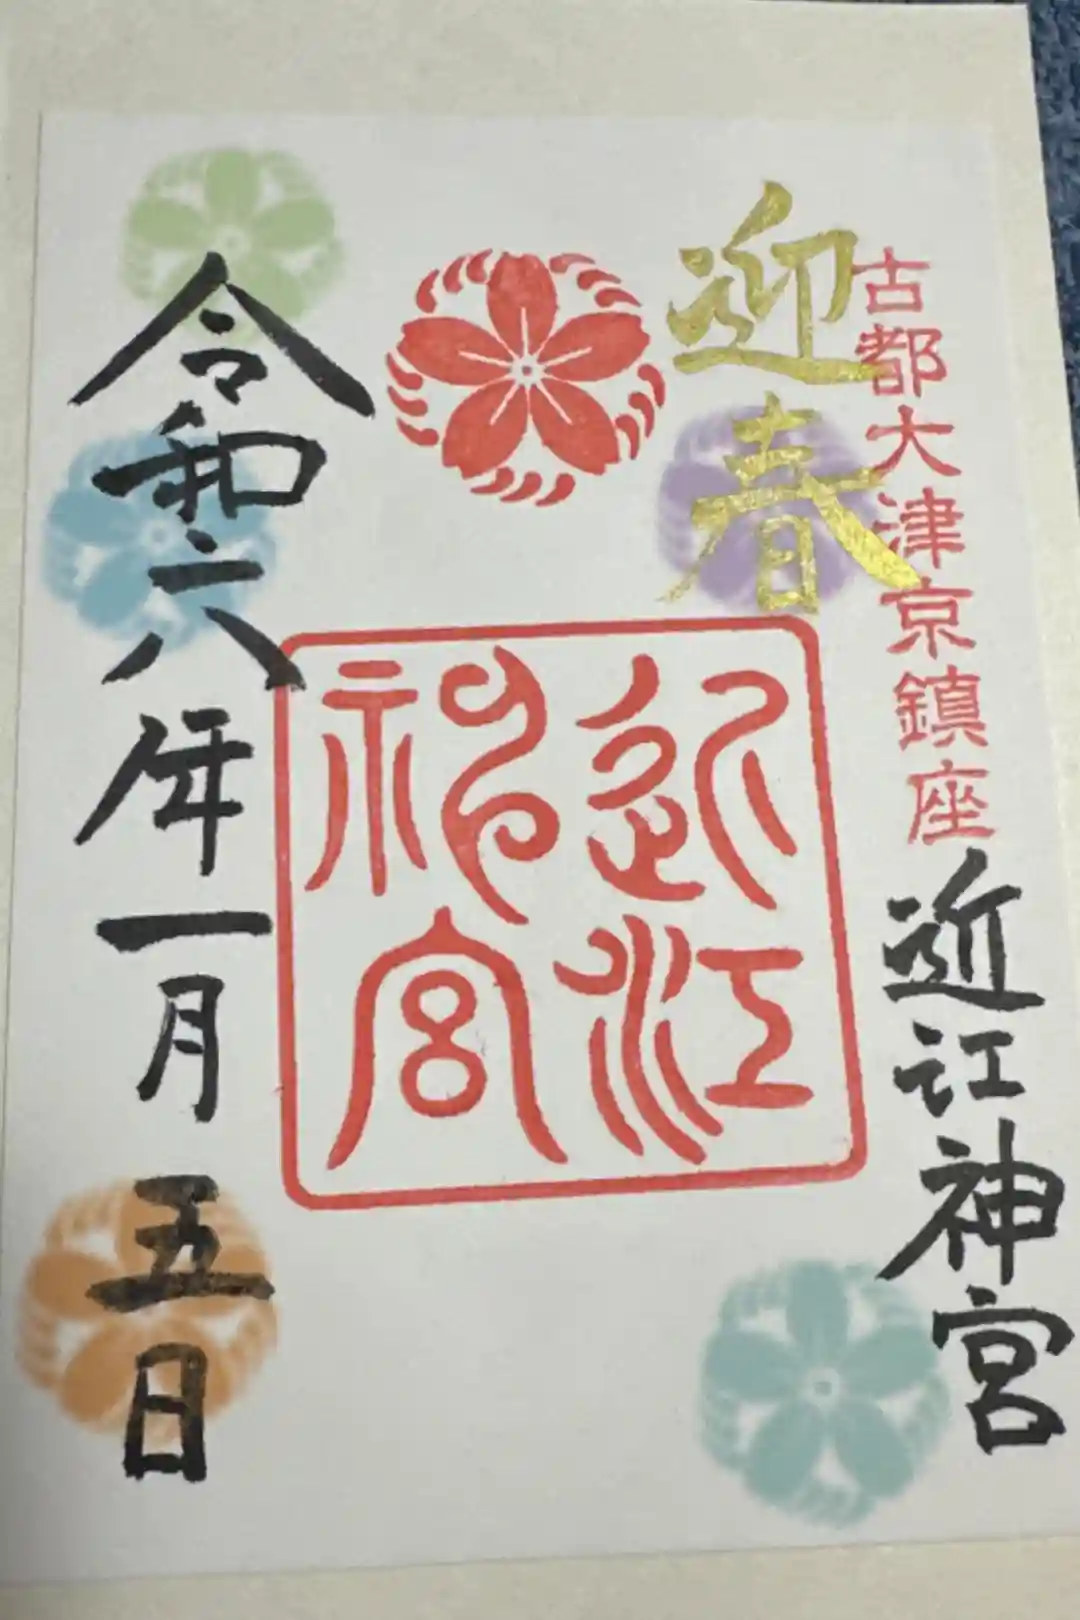 迎春
古都大津京鎮座
近江神宮
近江
神宮
令和六年一月五日